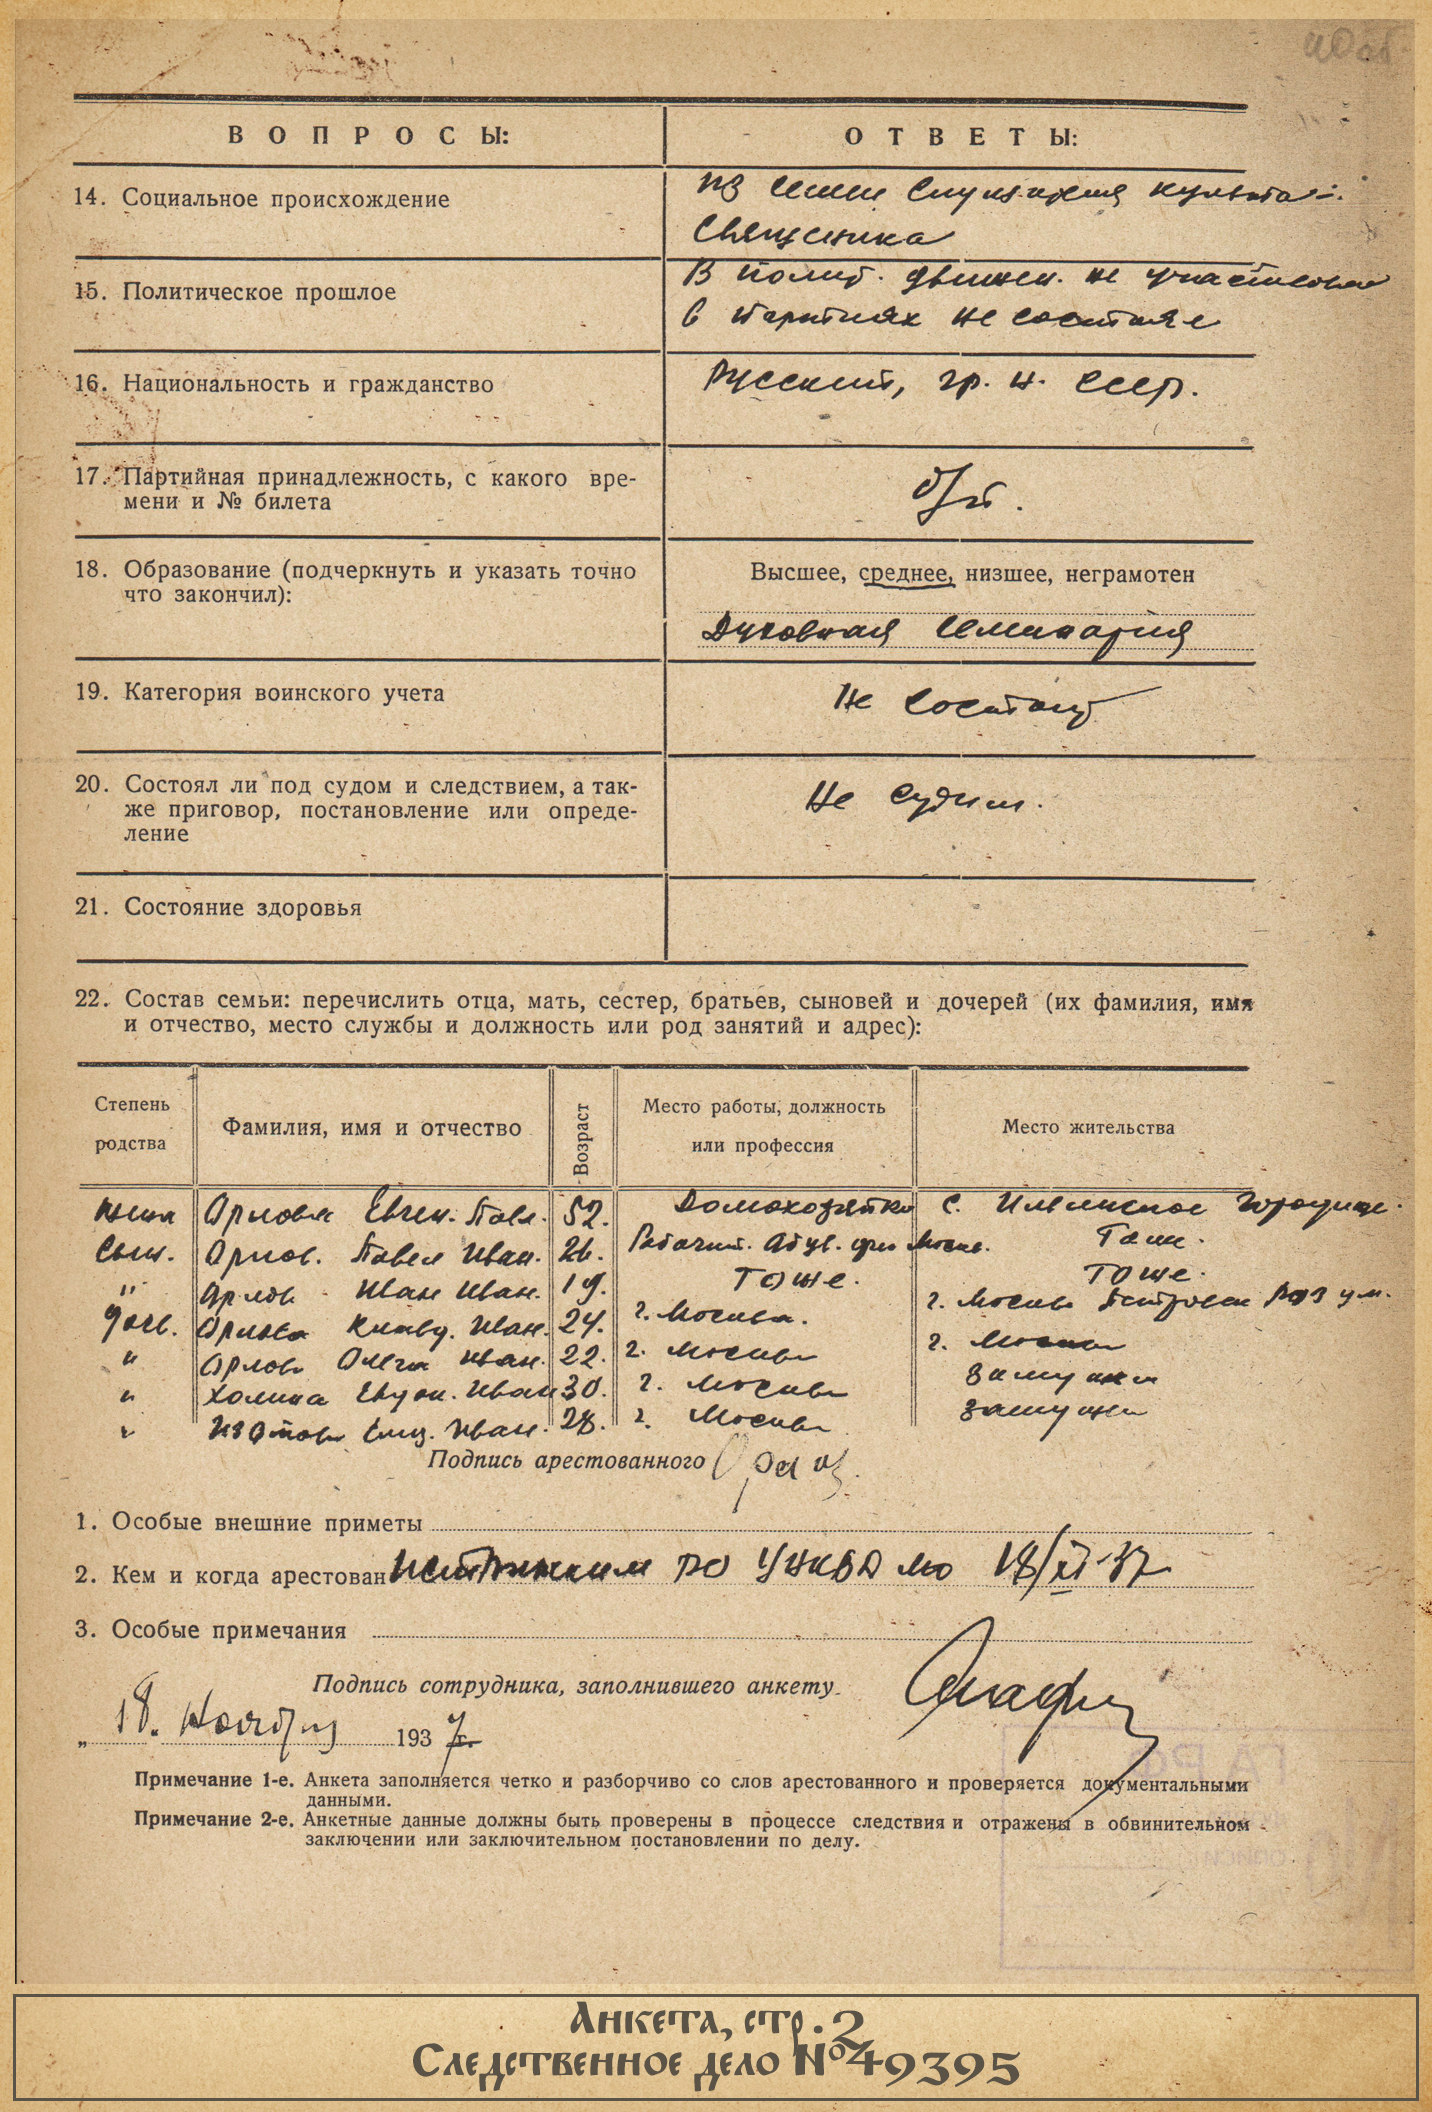 ВОПРОСЫ: ОТВЕТЫ:
14. Социальное происхождение
из семьи служителя культа -
священника
15. Политическое прошлое
В полит. движен. не участвовал
в партиях не состоял
16. Национальность и гражданство
Русский, гр. н. ссср.
17. Партийная принадлежность, с какого вре-
мени и № билета
б/п.
18. Образование (подчеркнуть и указать точно
что закончил):
Высшее, среднее, низшее, неграмотен
Духовная семинария
19. Категория воинского учета
Не состоит
20. Состоял ли под судом и следствием, а так-
же приговор, постановление или опреде-
ление
Не судим.
21. Состояние здоровья
22. Состав семьи: перечислить отца, мать, сестер, братьев, сыновей и дочерей (их фамилия, имя
и отчество, место службы и должность или род занятий и адрес):
Степень родства Фамилия, имя и отчество Возраст Место работы, должность или профессия Место жительства
жена Орлова Евген. Павл. 52. Домохозяйка с. Ильинское Городище.
Сын. Орлов. Павел Иван. 26. Рабочий. Обув. фаб. Москв. Там.
" Орлов Иван Иван. 19. Тоже. Тоже.
дочь. Орлова Клавд. Иван. 24. г. Москва. г. Москва Петровск. ул.
" Орлова Ольга Иван. 22. г. Москва г. Москва
" Холина Евдок. Иван 30. г. Москва замужем
" Изотова Елиз. Иван. 28. г. Москва замужем
Подпись арестованного
1. Особые внешние приметы
2. Кем и когда арестован Истринским РО УНКВД мо 18/XI-37
3. Особые примечания
Подпись сотрудника, заполнившего анкету
„ 18. Ноября 1937 г.
Примечание 1-е. Анкета заполняется четко и разборчиво со слов арестованного и проверяется документальными
данными.
Примечание 2-е. Анкетные данные должны быть проверены в процессе следствия и отражены в обвинительном
заключении или заключительном постановлении по делу.
Анкета, стр. 2
Следственное дело №49395